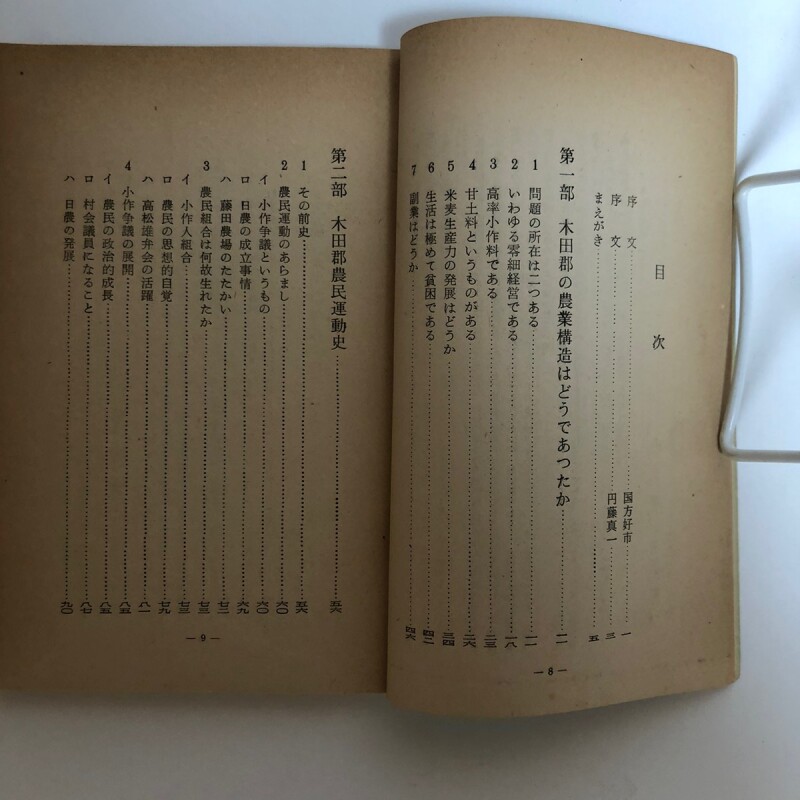 目次
序文……国方好市 一
序文……円藤真一 三
まえがき……五
第一部 木田郡の農業構造はどうであつたか……一一
1 問題の所在は二つある……一一
2 いわゆる零細経営である……一八
3 高率小作料である……二三
4 甘土料というものがある……二六
5 米麦生産力の発展はどうか……三四
6 生活は極めて貧困である……四二
7 副業はどうか……四六
—8—
第二部 木田郡農民運動史……五六
1 その前史……五六
2 農民運動のあらまし……六〇
イ 小作争議というもの……六〇
ロ 日農の成立事情……六九
ハ 藤田農場のたたかい……七二
3 農民組合は何故生れたか……七三
イ 小作人組合……七三
ロ 農民の思想的自覚……七九
ハ 高松雄弁会の活躍……八一
4 小作争議の展開……八五
イ 農民の政治的成長……八五
ロ 村会議員になること……八七
ハ 日農の発展……九〇
—9—